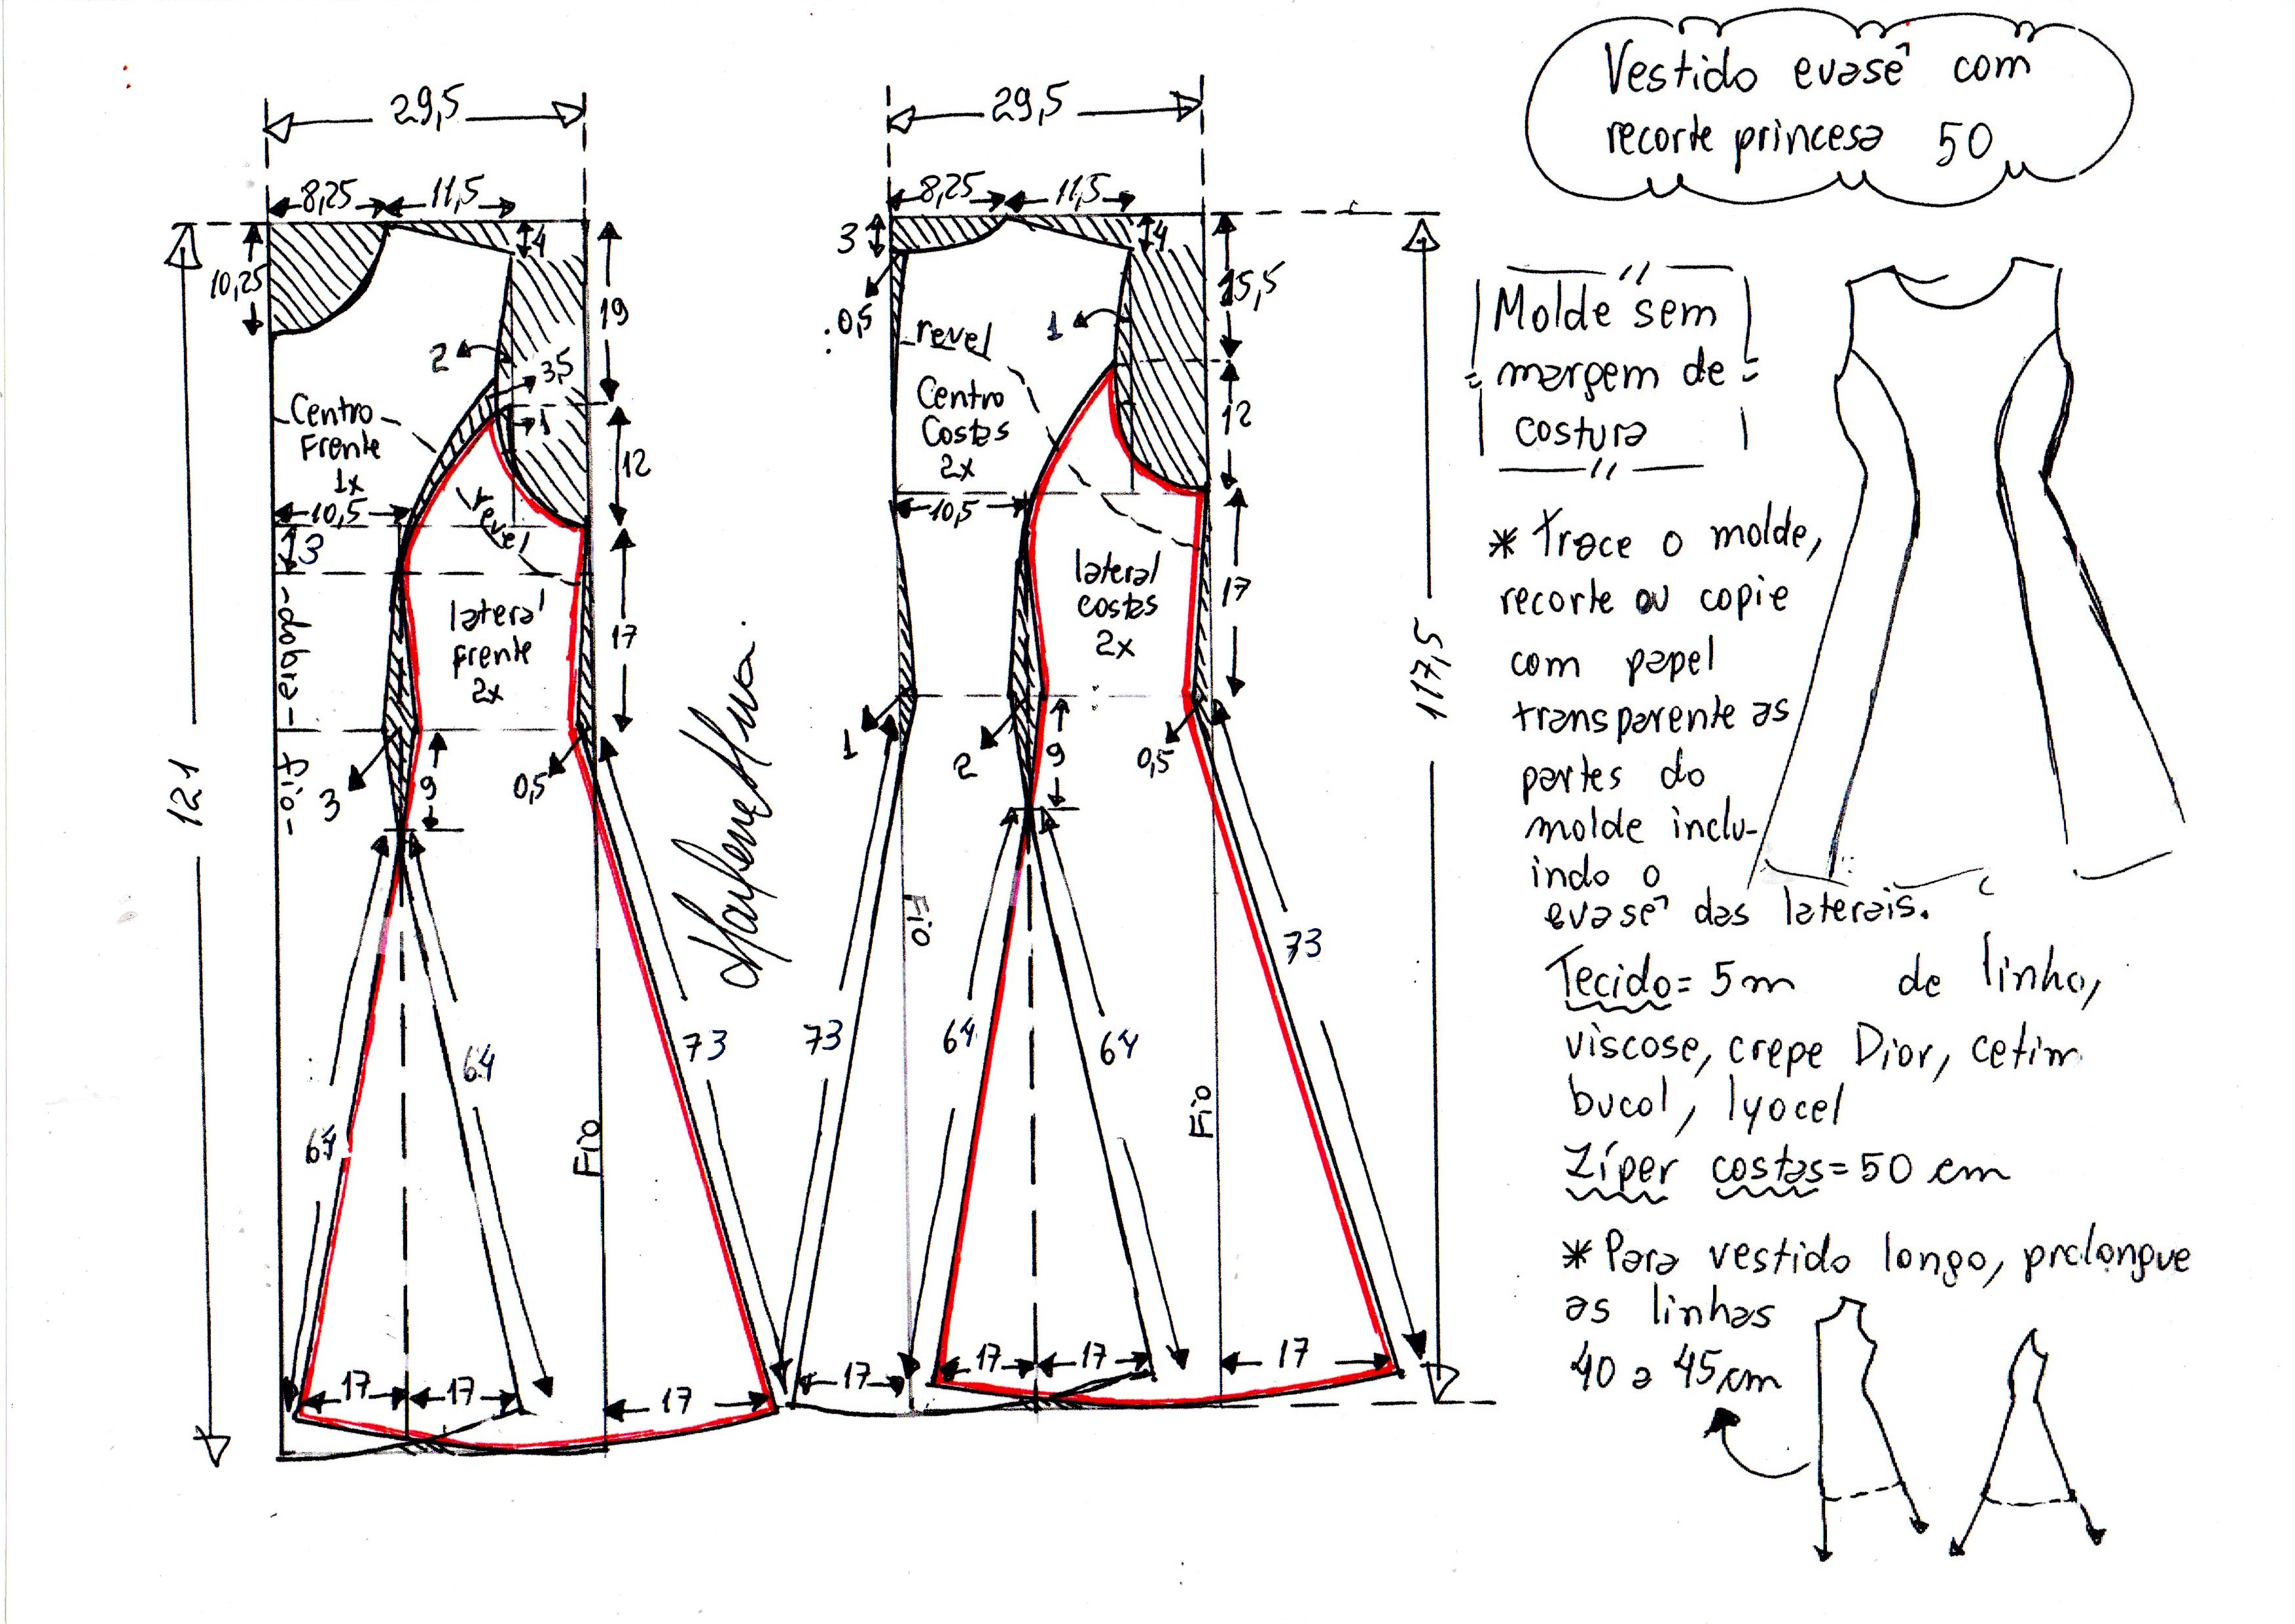 29,5
8,25
11,5
4
10,25
19
2
3,5
1
Centro
Frente
1x
12
10,5
revel
3
lateral
frente
2x
17
dobra
Fio
3
9
0,5
121
64
64
73
Fio
17
17
17
Marlene Mukai
29,5
8,25
11,5
3
4
0,5
15,5
revel
1
Centro
Costas
2x
12
10,5
lateral
costas
2x
17
1
2
9
0,5
117,5
Fio
73
64
64
73
Fio
17
17
17
17
Vestido evasê com
recorte princesa 50
Molde sem
margem de
costura
* Trace o molde,
recorte ou copie
com papel
transparente as
partes do
molde inclu-
indo o
evasê das laterais.
Tecido= 5m de linho,
viscose, crepe Dior, cetim
bucol, lyocel
Zíper costas= 50 cm
* Para vestido longo, prolongue
as linhas
40 a 45cm